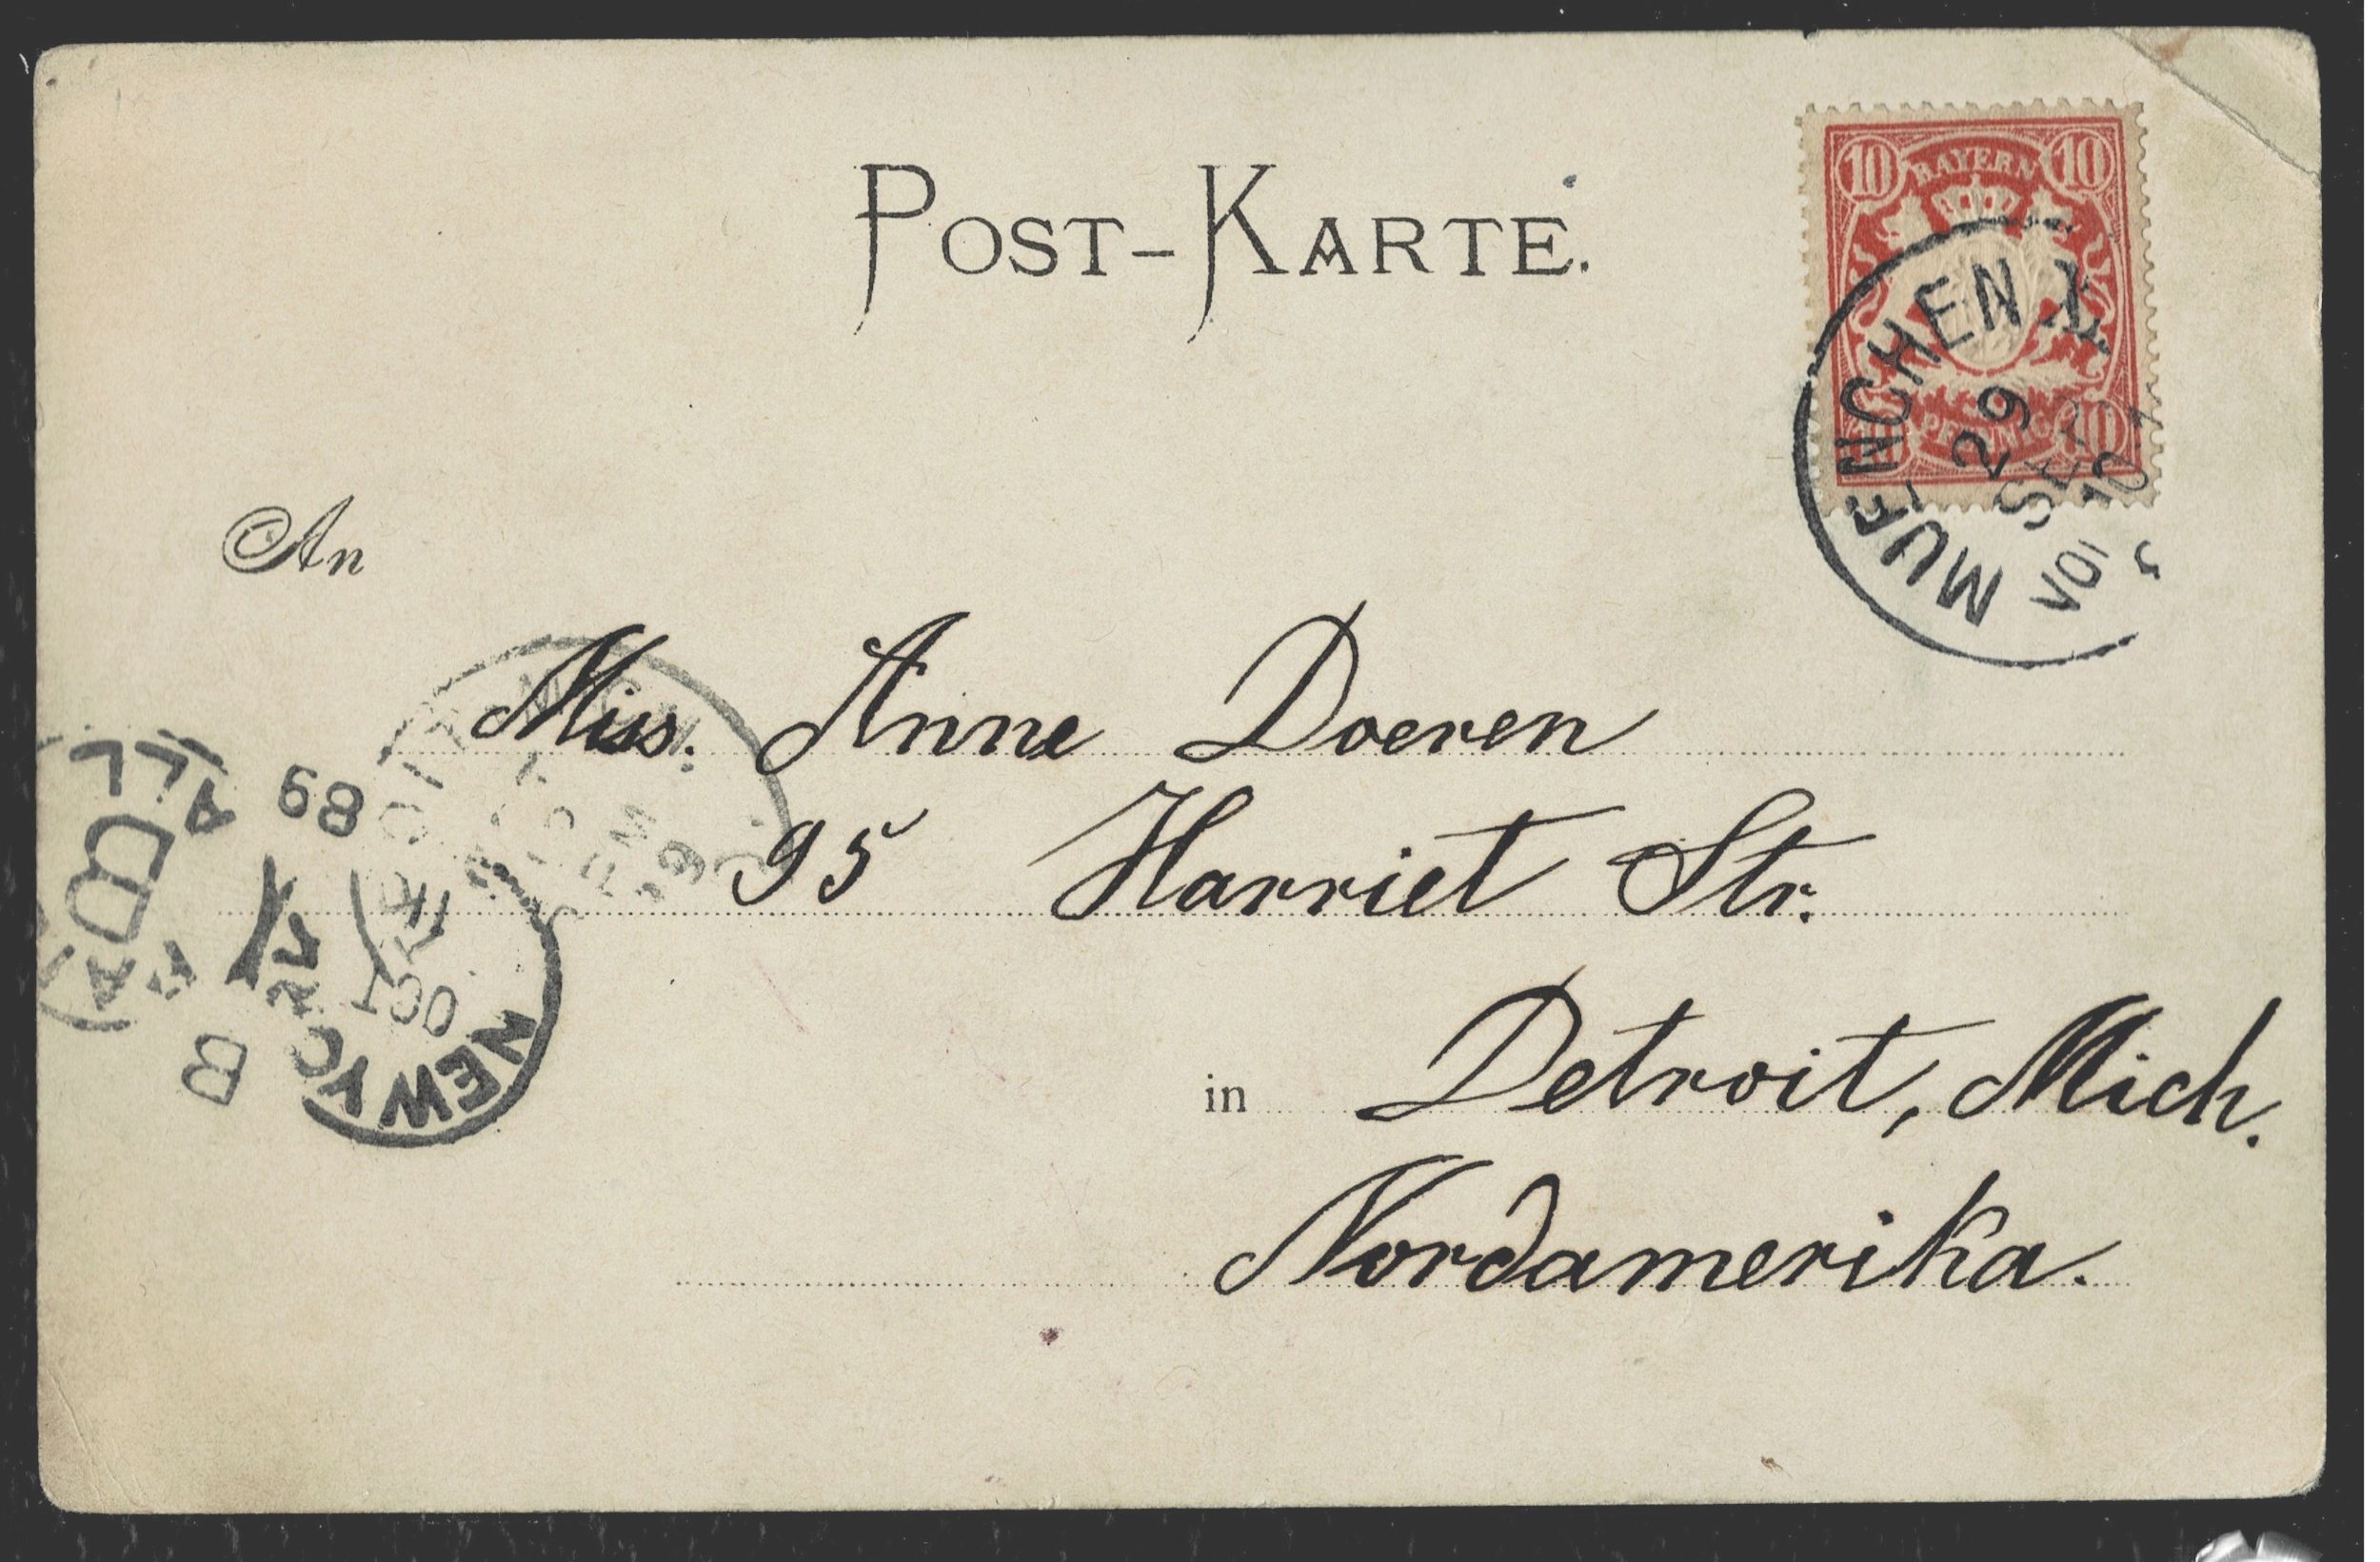 POST-KARTE.
10 BAYERN 10
PFENNIG 10
MUENCHEN
29
SEP
VOR 10
An
Miss. Anne Doeren
95 Harriet Str.
in Detroit, Mich.
Nordamerika.
ALL
B
89
OCT
NEW YORK
B